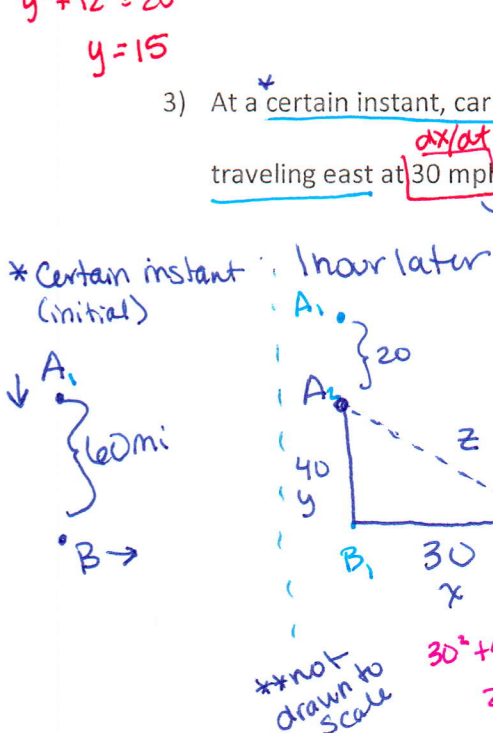 y² + 12² = 20²
y = 15
*
3) At a certain instant, car
dx/dt
traveling east at 30 mph
* Certain instant
(initial)
1 hour later
A₁
}20
A₁
↓
A₂
}60mi
z
40
y
B →
B₁
30
x
**not
drawn to
scale
30² +